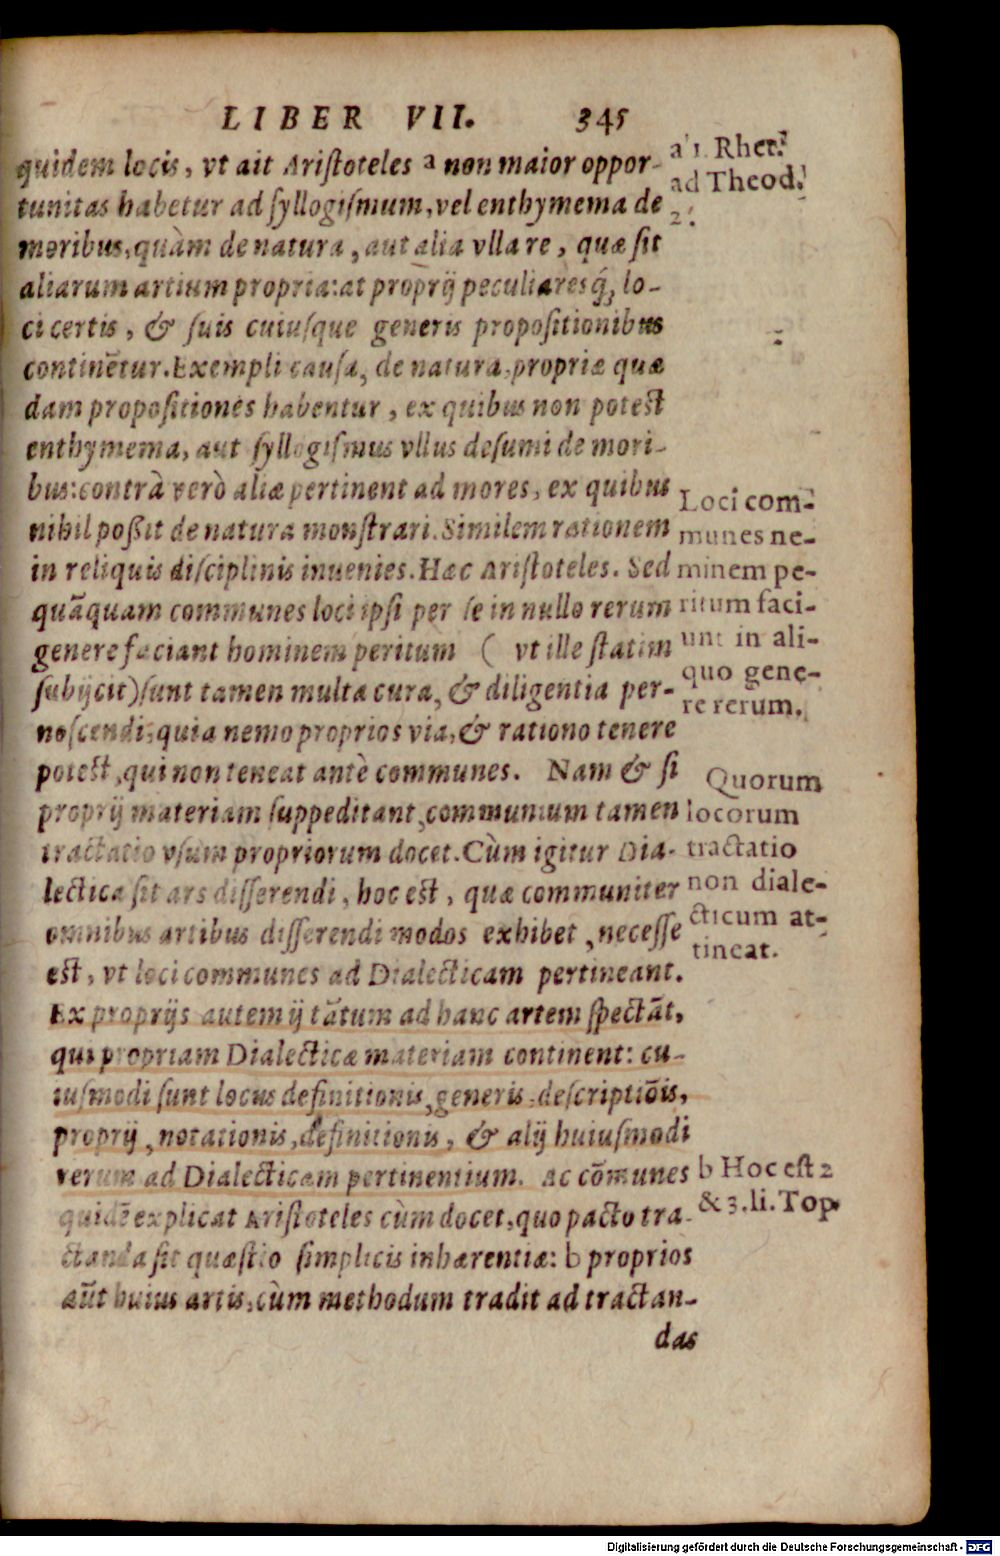 LIBER VII. 345
quidem locis, vt ait Aristoteles a non maior oppor-
tunitas habetur ad syllogismum, vel enthymema de
moribus, quàm de natura, aut alia vlla re, quæ sit
aliarum artium propria: at proprij peculiaresq́; lo-
ci certis, & suis cuiusque generis propositionibus
continētur. Exempli causa, de natura, propriæ quæ
dam propositiones habentur, ex quibus non potest
enthymema, aut syllogismus vllus desumi de mori-
bus: contrà verò aliæ pertinent ad mores, ex quibus
nihil poßit de natura monstrari. Similem rationem
in reliquis disciplinis inuenies. Hæc Aristoteles. Sed
quāquam communes loci ipsi per se in nullo rerum
genere faciant hominem peritum ( vt ille statim
subijcit) sunt tamen multa cura, & diligentia per-
noscendi, quia nemo proprios via, & rationo tenere
potest, qui non teneat antè communes. Nam & si
proprij materiam suppeditant, communium tamen
tractatio vsum propriorum docet. Cùm igitur Dia-
lectica sit ars disserendi, hoc est, quæ communiter
omnibus artibus disserendi modos exhibet, necesse
est, vt loci communes ad Dialecticam pertineant.
Ex proprijs autem ij tātum ad hanc artem spectāt,
qui propriam Dialecticæ materiam continent: cu-
iusmodi sunt locus definitionis, generis, descriptiōis,
proprij, notationis, definitionis, & alij huiusmodi
rerum ad Dialecticam pertinentium. Ac cōmunes
quidē explicat Aristoteles cùm docet, quo pacto tra-
ctanda sit quæstio simplicis inhærentiæ: b proprios
aūt huius artis, cùm methodum tradit ad tractan-
das
a 1. Rhet.
ad Theod.
2.
Loci com-
munes ne-
minem pe-
ritum faci-
unt in ali-
quo gene-
re rerum.
Quorum
locorum
tractatio
non diale-
cticum at-
tineat.
b Hoc est 2
& 3. li. Top.
Digitalisierung gefördert durch die Deutsche Forschungsgemeinschaft - DFG